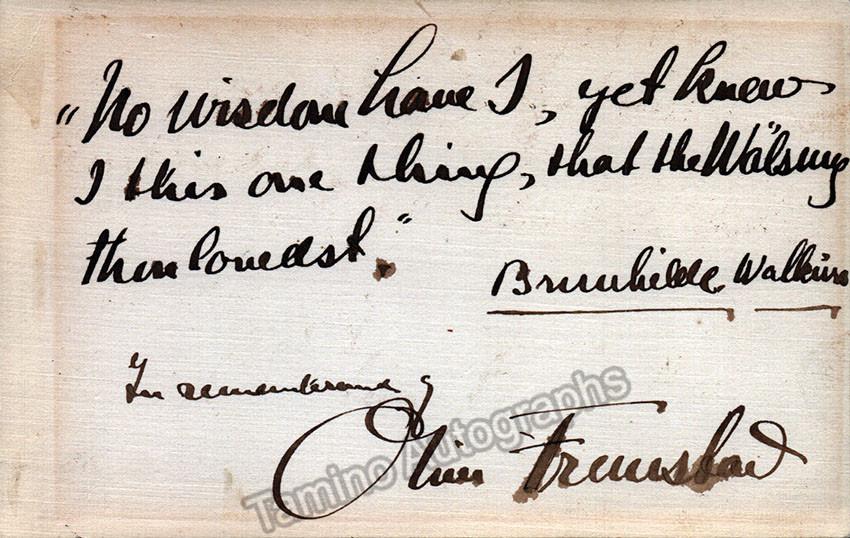 "No wisdom have I, yet knew
I this one thing, that the Wälsung
thou lovedst."
Brunhilde Walküre
In remembrance of
Olive Fremstad
Tamino Autographs